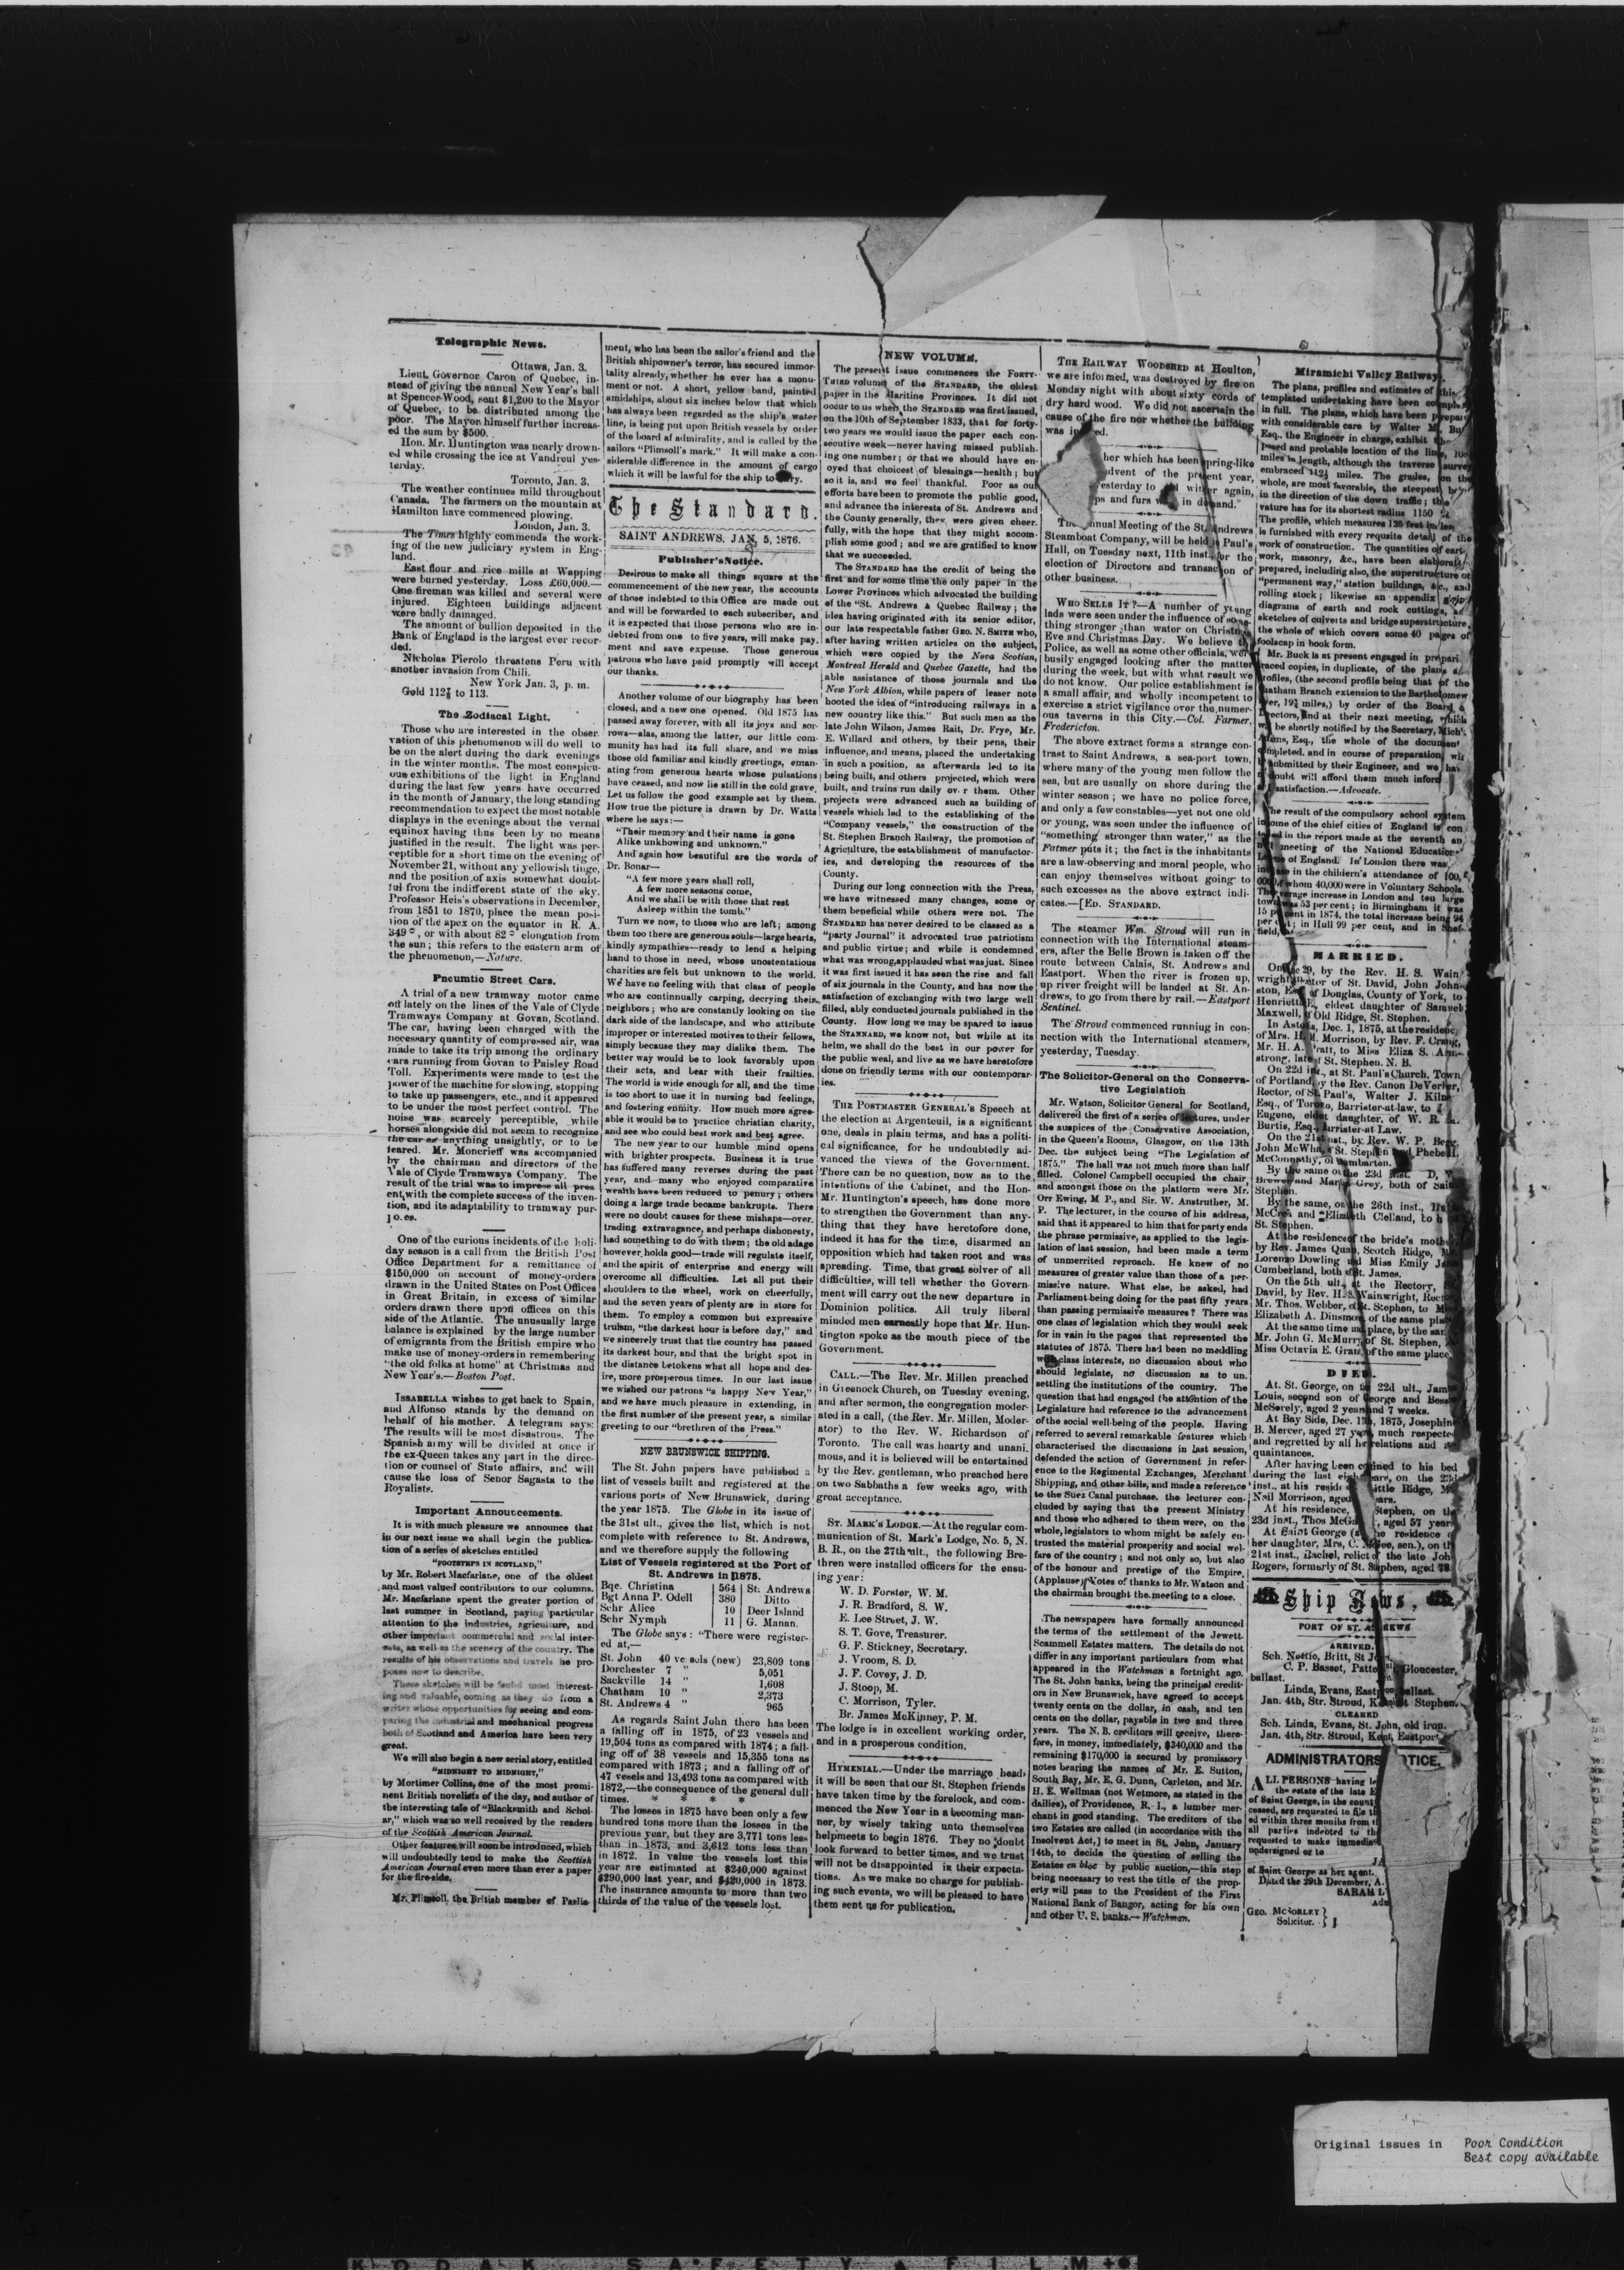 Telegraphic News.
Ottawa, Jan. 3.
Lieut. Governor Caron of Quebec, in-
stead of giving the annual New Year's ball
at Spencer Wood, sent $1,200 to the Mayor
of Quebec, to be distributed among the
poor. The Mayor himself further increas-
ed the sum by $500.
Hon. Mr. Huntington was nearly drown-
ed while crossing the ice at Vandreul yes-
terday.
Toronto, Jan. 3.
The weather continues mild throughout
Canada. The farmers on the mountain at
Hamilton have commenced plowing.
London, Jan. 3.
The Times highly commends the work-
ing of the new judiciary system in Eng-
land.
East flour and rice mills at Wapping
were burned yesterday. Loss £60,000.—
One fireman was killed and several were
injured. Eighteen buildings adjacent
were badly damaged.
The amount of bullion deposited in the
Bank of England is the largest ever recor-
ded.
Nicholas Pierolo threatens Peru with
another invasion from Chili.
New York Jan. 3, p. m.
Gold 112⅞ to 113.
The Zodiacal Light.
Those who are interested in the obser
vation of this phenomenon will do well to
be on the alert during the dark evenings
in the winter months. The most conspicu-
ous exhibitions of the light in England
during the last few years have occurred
in the month of January, the long standing
recommendation to expect the most notable
displays in the evenings about the vernal
equinox having thus been by no means
justified in the result. The light was per-
ceptible for a short time on the evening of
November 21, without any yellowish tinge,
and the position of axis somewhat doubt-
ful from the indifferent state of the sky.
Professor Heis's observations in December,
from 1851 to 1870, place the mean posi-
tion of the apex on the equator in R. A.
349°, or with about 82° elongation from
the sun; this refers to the eastern arm of
the phenomenon,—Nature.
Pneumtic Street Cars.
A trial of a new tramway motor came
off lately on the lines of the Vale of Clyde
Tramways Company at Govan, Scotland.
The car, having been charged with the
necessary quantity of compressed air, was
made to take its trip among the ordinary
cars running from Govan to Paisley Road
Toll. Experiments were made to test the
power of the machine for slowing, stopping
to take up passengers, etc., and it appeared
to be under the most perfect control. The
noise was scarcely perceptible, while
horses alongside did not seem to recognize
the car as anything unsightly, or to be
feared. Mr. Moncrieff was accompanied
by the chairman and directors of the
Vale of Clyde Tramways Company. The
result of the trial was to impress all pres
ent with the complete success of the inven-
tion, and its adaptability to tramway pur-
poses.
One of the curious incidents of the holi-
day season is a call from the British Post
Office Department for a remittance of
$150,000 on account of money-orders
drawn in the United States on Post Offices
in Great Britain, in excess of similar
orders drawn there upon offices on this
side of the Atlantic. The unusually large
balance is explained by the large number
of emigrants from the British empire who
make use of money-orders in remembering
"the old folks at home" at Christmas and
New Year's.—Boston Post.
ISSABELLA wishes to get back to Spain,
and Alfonso stands by the demand on
behalf of his mother. A telegram says:
The results will be most disastrous. The
Spanish army will be divided at once if
the ex-Queen takes any part in the direc-
tion or counsel of State affairs, and will
cause the loss of Senor Sagasta to the
Royalists.
Important Announcements.
It is with much pleasure we announce that
in our next issue we shall begin the publica-
tion of a series of sketches entitled
"FOOTSTEPS IN SCOTLAND,"
by Mr. Robert Macfarlane, one of the oldest
and most valued contributors to our columns.
Mr. Macfarlane spent the greater portion of
last summer in Scotland, paying particular
attention to the industries, agriculture, and
other important commercial and social inter-
ests, as well as the scenery of the country. The
results of his observations and travels he pro-
poses now to describe.
These sketches will be found most interest-
ing and valuable, coming as they do from a
writer whose opportunities for seeing and com-
paring the industrial and mechanical progress
both of Scotland and America have been very
great.
We will also begin a new serial story, entitled
"MIDNIGHT TO MIDNIGHT,"
by Mortimer Collins, one of the most promi-
nent British novelists of the day, and author of
the interesting tale of "Blacksmith and Schol-
ar," which was so well received by the readers
of the Scottish American Journal.
Other features will soon be introduced, which
will undoubtedly tend to make the Scottish
American Journal even more than ever a paper
for the fire-side.
Mr. Plimsoll, the British member of Parlia-
ment, who has been the sailor's friend and the
British shipowner's terror, has secured immor-
tality already, whether he ever has a monu-
ment or not. A short, yellow band, painted
amidships, about six inches below that which
has always been regarded as the ship's water
line, is being put upon British vessels by order
of the board of admirality, and is called by the
sailors "Plimsoll's mark." It will make a con-
siderable difference in the amount of cargo
which it will be lawful for the ship to carry.
The Standard.
SAINT ANDREWS, JAN. 5, 1876.
Publisher's Notice.
Desirous to make all things square at the
commencement of the new year, the accounts
of those indebted to this Office are made out
and will be forwarded to each subscriber, and
it is expected that those persons who are in-
debted from one to five years, will make pay.
ment and save expense. Those generous
patrons who have paid promptly will accept
our thanks.
Another volume of our biography has been
closed, and a new one opened. Old 1875 has
passed away forever, with all its joys and sor-
rows—alas, among the latter, our little com-
munity has had its full share, and we miss
those old familiar and kindly greetings, eman-
ating from generous hearts whose pulsations
have ceased, and now lie still in the cold grave.
Let us follow the good example set by them.
How true the picture is drawn by Dr. Watts
where he says:—
"Their memory and their name is gone
Alike unknowing and unknown."
And again how beautiful are the words of
Dr. Bonar—
"A few more years shall roll,
A few more seasons come,
And we shall be with those that rest
Asleep within the tomb."
Turn we now, to those who are left; among
them too there are generous souls—large hearts,
kindly sympathies—ready to lend a helping
hand to those in need, whose unostentatious
charities are felt but unknown to the world.
We have no feeling with that class of people
who are continnually carping, decrying their
neighbors; who are constantly looking on the
dark side of the landscape, and who attribute
improper or interested motives to their fellows,
simply because they may dislike them. The
better way would be to look favorably upon
their acts, and bear with their frailties.
The world is wide enough for all, and the time
is too short to use it in nursing bad feelings,
and fostering enmity. How much more agree-
able it would be to practice christian charity,
and see who could best work and best agree.
The new year to our humble mind opens
with brighter prospects. Business it is true
has suffered many reverses during the past
year, and many who enjoyed comparative
wealth have been reduced to penury; others
doing a large trade became bankrupts. There
were no doubt causes for these mishaps—over.
trading extravagance, and perhaps dishonesty,
had something to do with them; the old adage
however holds good—trade will regulate itself,
and the spirit of enterprise and energy will
overcome all difficulties. Let all put their
shoulders to the wheel, work on cheerfully,
and the seven years of plenty are in store for
them. To employ a common but expressive
truism, "the darkest hour is before day," and
we sincerely trust that the country has passed
its darkest hour, and that the bright spot in
the distance betokens what all hope and des-
ire, more prosperous times. In our last issue
we wished our patrons "a happy New Year,"
and we have much pleasure in extending, in
the first number of the present year, a similar
greeting to our "brethren of the Press."
NEW BRUNSWICK SHIPPING.
The St. John papers have published a
list of vessels built and registered at the
various ports of New Brunswick, during
the year 1875. The Globe in its issue of
the 31st ult., gives the list, which is not
complete with reference to St. Andrews,
and we therefore supply the following
List of Vessels registered at the Port of
St. Andrews in 1875.
Bqe. Christina 564 St. Andrews
Bgt Anna P. Odell 380 Ditto
Schr Alice 10 Deer Island
Schr Nymph 11 G. Manan.
The Globe says: "There were register-
ed at,—
St. John 40 vessels (new) 23,809 tons
Dorchester 7 " 5,051
Sackville 14 " 1,608
Chatham 10 " 2,373
St. Andrews 4 " 965
As regards Saint John there has been
a falling off in 1875, of 23 vessels and
19,504 tons as compared with 1874; a fall-
ing off of 38 vessels and 15,355 tons as
compared with 1873; and a falling off of
47 vesels and 13,493 tons as compared with
1872,—the consequence of the general dull
times. * * * *
The losses in 1875 have been only a few
hundred tons more than the losses in the
previous year, but they are 3,771 tons less
than in 1873, and 3,612 tons less than
in 1872. In value the vessels lost this
year are estimated at $240,000 against
$290,000 last year, and $420,000 in 1873.
The insurance amounts to more than two
thirds of the value of the vessels lost.
NEW VOLUME.
The present issue commences the FORTY-
THIRD volume of the STANDARD, the oldest
paper in the Maritine Provinces. It did not
occur to us when the STANDARD was first issued,
on the 10th of September 1833, that for forty-
two years we would issue the paper each con-
secutive week—never having missed publish-
ing one number; or that we should have en-
oyed that choicest of blessings—health; but
so it is, and we feel thankful. Poor as our
efforts have been to promote the public good,
and advance the interests of St. Andrews and
the County generally, they were given cheer.
fully, with the hope that they might accom-
plish some good; and we are gratified to know
that we succeeded.
The STANDARD has the credit of being the
first and for some time the only paper in the
Lower Provinces which advocated the building
of the "St. Andrews & Quebec Railway; the
idea having originated with its senior editor,
our late respectable father GEO. N. SMITH who,
after having written articles on the subject,
which were copied by the Nova Scotian,
Montreal Herald and Quebec Gazette, had the
able assistance of those journals and the
New York Albion, while papers of lesser note
hooted the idea of "introducing railways in a
new country like this." But such men as the
late John Wilson, James Rait, Dr. Frye, Mr.
E. Willard and others, by their pens, their
influence, and means, placed the undertaking
in such a position, as afterwards led to its
being built, and others projected, which were
built, and trains run daily over them. Other
projects were advanced such as building of
vessels which led to the establishing of the
"Company vessels," the construction of the
St. Stephen Branch Railway, the promotion of
Agriculture, the establishment of manufactor-
ies, and developing the resources of the
County.
During our long connection with the Press,
we have witnessed many changes, some of
them beneficial while others were not. The
STANDARD has never desired to be classed as a
"party Journal" it advocated true patriotism
and public virtue; and while it condemned
what was wrong, applauded what was just. Since
it was first issued it has seen the rise and fall
of six journals in the County, and has now the
satisfaction of exchanging with two large well
filled, ably conducted journals published in the
County. How long we may be spared to issue
the STANNARD, we know not, but while at its
helm, we shall do the best in our power for
the public weal, and live as we have heretofore
done on friendly terms with our contemporar-
ies.
THE POSTMASTER GENERAL'S Speech at
the election at Argenteuil, is a significant
one, deals in plain terms, and has a politi-
cal significance, for he undoubtedly ad-
vanced the views of the Government.
There can be no question, now as to the
intentions of the Cabinet, and the Hon-
Mr. Huntington's speech, has done more
to strengthen the Government than any-
thing that they have heretofore done,
indeed it has for the time, disarmed an
opposition which had taken root and was
spreading. Time, that great solver of all
difficulties, will tell whether the Govern-
ment will carry out the new departure in
Dominion politics. All truly liberal
minded men earnestly hope that Mr. Hun-
tington spoke as the mouth piece of the
Government.
CALL.—The Rev. Mr. Millen preached
in Greenock Church, on Tuesday evening,
and after sermon, the congregation moder-
ated in a call, (the Rev. Mr. Millen, Moder-
ator) to the Rev. W. Richardson of
Toronto. The call was hearty and unani.
mous, and it is believed will be entertained
by the Rev. gentleman, who preached here
on two Sabbaths a few weeks ago, with
great acceptance.
ST. MARK'S LODGE.—At the regular com-
munication of St. Mark's Lodge, No. 5, N.
B. R., on the 27th ult., the following Bre-
thren were installed officers for the ensu-
ing year:
W. D. Forster, W. M.
J. R. Bradford, S. W.
E. Lee Street, J. W.
S. T. Gove, Treasurer.
G. F. Stickney, Secretary.
J. Vroom, S. D.
J. F. Covey, J. D.
J. Stoop, M.
C. Morrison, Tyler.
Br. James McKinney, P. M.
The lodge is in excellent working order,
and in a prosperous condition.
HYMENIAL.—Under the marriage head,
it will be seen that our St. Stephen friends
have taken time by the forelock, and com-
menced the New Year in a becoming man-
ner, by wisely taking unto themselves
helpmeets to begin 1876. They no doubt
look forward to better times, and we trust
will not be disappointed in their expecta-
tions. As we make no charge for publish-
ing such events, we will be pleased to have
them sent us for publication.
THE RAILWAY WOODSHED at Houlton,
we are informed, was destroyed by fire on
Monday night with about sixty cords of
dry hard wood. We did not ascertain the
cause of the fire nor whether the building
was
her which has been spring-like
dvent of the present year,
esterday to winter again,
ps and furs in demand."
The Annual Meeting of the St. Andrews
Steamboat Company, will be held Paul's
Hall, on Tuesday next, 11th inst., for the
election of Directors and transaction of
other business.
WHO SELLS IT?—A number of young
lads were seen under the influence of some-
thing stronger than water on Christmas
Eve and Christmas Day. We believe the
Police, as well as some other officials, were
busily engaged looking after the matter
during the week, but with what result we
do not know. Our police establishment is
a small affair, and wholly incompetent to
exercise a strict vigilance over the numer-
ous taverns in this City.—Col. Farmer,
Fredericton.
The above extract forms a strange con-
trast to Saint Andrews, a sea-port town,
where many of the young men follow the
sea, but are usually on shore during the
winter season; we have no police force,
and only a few constables—yet not one old
or young, was seen under the influence of
"something stronger than water," as the
Fatmer puts it; the fact is the inhabitants
are a law-observing and moral people, who
can enjoy themselves without going to
such excesses as the above extract indi-
cates.—[ED. STANDARD.
The steamer Wm. Stroud will run in
connection with the International steam-
ers, after the Belle Brown is taken off the
route between Calais, St. Andrews and
Eastport. When the river is frozen up,
up river freight will be landed at St. An-
drews, to go from there by rail.—Eastport
Sentinel.
The Stroud commenced running in con-
nection with the International steamers,
yesterday, Tuesday.
The Solicitor-General on the Conserva-
tive Legislation
Mr. Watson, Solicitor General for Scotland,
delivered the first of a series of lectures, under
the auspices of the Conservative Association,
in the Queen's Rooms, Glasgow, on the 13th
Dec. the subject being "The Legislation of
1875." The hall was not much more than half
filled. Colonel Campbell occupied the chair,
and amongst those on the platform were Mr.
Orr Ewing, M P., and Sir. W. Anstruther, M.
P. The lecturer, in the course of his address,
said that it appeared to him that for party ends
the phrase permissive, as applied to the legis-
lation of last session, had been made a term
of unmerrited reproach. He knew of no
measures of greater value than those of a per-
missive nature. What else, he asked, had
Parliament being doing for the past fifty years
than passing permissive measures? There was
one class of legislation which they would seek
for in vain in the pages that represented the
statutes of 1875. There had been no meddling
with class interests, no discussion about who
should legislate, no discussion as to un.
settling the institutions of the country. The
question that had engaged the attention of the
Legislature had reference to the advancement
of the social well-being of the people. Having
referred to several remarkable features which
characterised the discussions in last session,
defended the action of Government in refer-
ence to the Regimental Exchanges, Merchant
Shipping, and other bills, and made a reference
to the Suez Canal purchase. the lecturer con-
cluded by saying that the present Ministry
and those who adhered to them were, on the
whole, legislators to whom might be safely en-
trusted the material prosperity and social wel-
fare of the country; and not only so, but also
of the honour and prestige of the Empire.
(Applause) Notes of thanks to Mr. Watson and
the chairman brought the meeting to a close.
The newspapers have formally announced
the terms of the settlement of the Jewett-
Scammell Estates matters. The details do not
differ in any important particulars from what
appeared in the Watchman a fortnight ago.
The St. John banks, being the principal credit-
ors in New Brunswick, have agreed to accept
twenty cents on the dollar, in cash, and ten
cents on the dollar, payable in two and three
years. The N. B. creditors will receive, there-
fore, in money, immediately, $340,000 and the
remaining $170,000 is secured by promissory
notes bearing the names of Mr. E. Sutton,
South Bay, Mr. E. G. Dunn, Carleton, and Mr.
H. E. Wellman (not Wetmore, as stated in the
dailies), of Providence, R. I., a lumber mer-
chant in good standing. The creditors of the
two Estates are called (in accordance with the
Insolvent Act,] to meet in St. John, January
14th, to decide the question of selling the
Estates en bloc by public auction,—this step
being necessary to vest the title of the prop-
erty will pass to the President of the First
National Bank of Bangor, acting for his own
and other U. S. banks.—Watchman.
Miramichi Valley Railway.
The plans, profiles and estimates of this
templated undertaking have been
in full. The plans, which have been
with considerable care by Walter M.
Esq., the Engineer in charge, exhibit the
posed and probable location of the line,
miles in length, although the traverse survey
embraced 142½ miles. The grades, on the
whole, are most favorable, the steepest
in the direction of the down traffic; the
vature has for its shortest radius 1150
The profile, which measures 125 feet in
is furnished with every requsite detail of the
work of construction. The quantities of
work, masonry, &c., have been
prepared, including also, the superstructure of
"permanent way," station buildings, &c., and
rolling stock; likewise an appendix
diagrams of earth and rock cuttings,
sketches of culverts and bridge superstructure,
the whole of which covers some 40 pages of
foolscap in book form.
Mr. Buck is at present engaged in
traced copies, in duplicate, of the plans
profiles, (the second profile being that of the
Chatham Branch extension to the Bartholomew
River, 19½ miles,) by order of the Board
Directors, and at their next meeting, which
will be shortly notified by the Secretary,
Esq., the whole of the
completed, and in course of preparation, will
submitted by their Engineer, and we
doubt will afford them much
satisfaction.—Advocate.
The result of the compulsory school system
in some of the chief cities of England is con
in the report made at the seventh an
meeting of the National Education
League of England. In London there was
increase in the childern's attendance of 100,
000, of whom 40,000 were in Voluntary Schools.
The average increase in London and ten large
towns was 53 per cent; in Birmingham it was
15 per cent in 1874, the total increase being 94
per cent; in Hull 99 per cent, and in Shef-
field,
MARRIED.
On 29, by the Rev. H. S. Wain
wright, of St. David, John John-
ston, of Douglas, County of York, to
Henrietta E, eldest daughter of Samuel
Maxwell, of Old Ridge, St. Stephen.
In Astoria, Dec. 1, 1875, at the residence
of Mrs. H. M. Morrison, by Rev. F.
Mr. H. A. Pratt, to Miss Eliza S. Arm-
strong, late of St. Stephen. N. B.
On 22d inst., at St. Paul's Church, Town
of Portland, by the Rev. Canon DeVerber,
Rector, of St. Paul's, Walter J.
Esq., of Toronto, Barrister-at-law, to
Eugene, eldest daughter, of W. R. M.
Burtis, Esq., Barrister-at Law.
On the 21st inst., by Rev. W. P. Begg,
John of St. Stephen Phebe
of Dumbarton.
By the same on the 23d inst. D,
Brewer and Grey, both of Saint
Stephen.
By the same, on the 26th inst.,
and Elizabeth Clelland, both of
St. Stephen.
At the residence of the bride's
by Rev. James Quinn, Scotch Ridge,
Lorenzo Dowling and Miss Emily
Cumberland, both of St. James.
On the 5th ult., at the Rectory,
David, by Rev. H. S. Wainwright, Rector
Mr. Thos. Webber, of St. Stephen, to Miss
Elizabeth A. Dinsmore of the same place
At the same time and place, by the same
Mr. John G. McMurry of St. Stephen,
Miss Octavia E. Grant, of the same place
DIED.
At. St. George, on the 22d ult.,
Louis, second son of George and
McSorely, aged 2 years and 7 weeks.
At Bay Side, Dec. 1875, Josephine
B. Mercer, aged 27 years, much respected
and regretted by all her relations and
quaintances.
After having been confined to his bed
during the last eight years, on the 23d
inst., at his Little Ridge,
Neil Morrison, aged years.
At his residence, Stephen, on the
23d inst., Thos , aged 57 years
At Saint George the residence of
her daughter, Mrs, C. McGee, sen.), on the
21st inst., Rachel, relict of the late John
Rogers, formerly of St. Stephen, aged 78
Ship News.
PORT OF ST. ANDREWS
ARRIVED.
Sch. Nettie, Britt, St
C. P. Bassot, Gloucester,
ballast.
Linda, Evans, Eastport ballast.
Jan. 4th, Str. Stroud, St Stephen.
CLEARED
Sch. Linda, Evans, St. John, old iron.
Jan. 4th, Str. Stroud, Kent, Eastport
ADMINISTRATORS NOTICE.
ALL PERSONS having
the estate of the late
of Saint George, in the
ceased, are requested to file
ed within three months from
all parties indebted to the
requested to make
undersigned or to
of Saint George as her agent.
Dated the 29th December, A.
SARAH
GEO. MCSORLEY
Solicitor.
Original issues in Poor Condition
Best copy available
KODAK SAFETY FILM